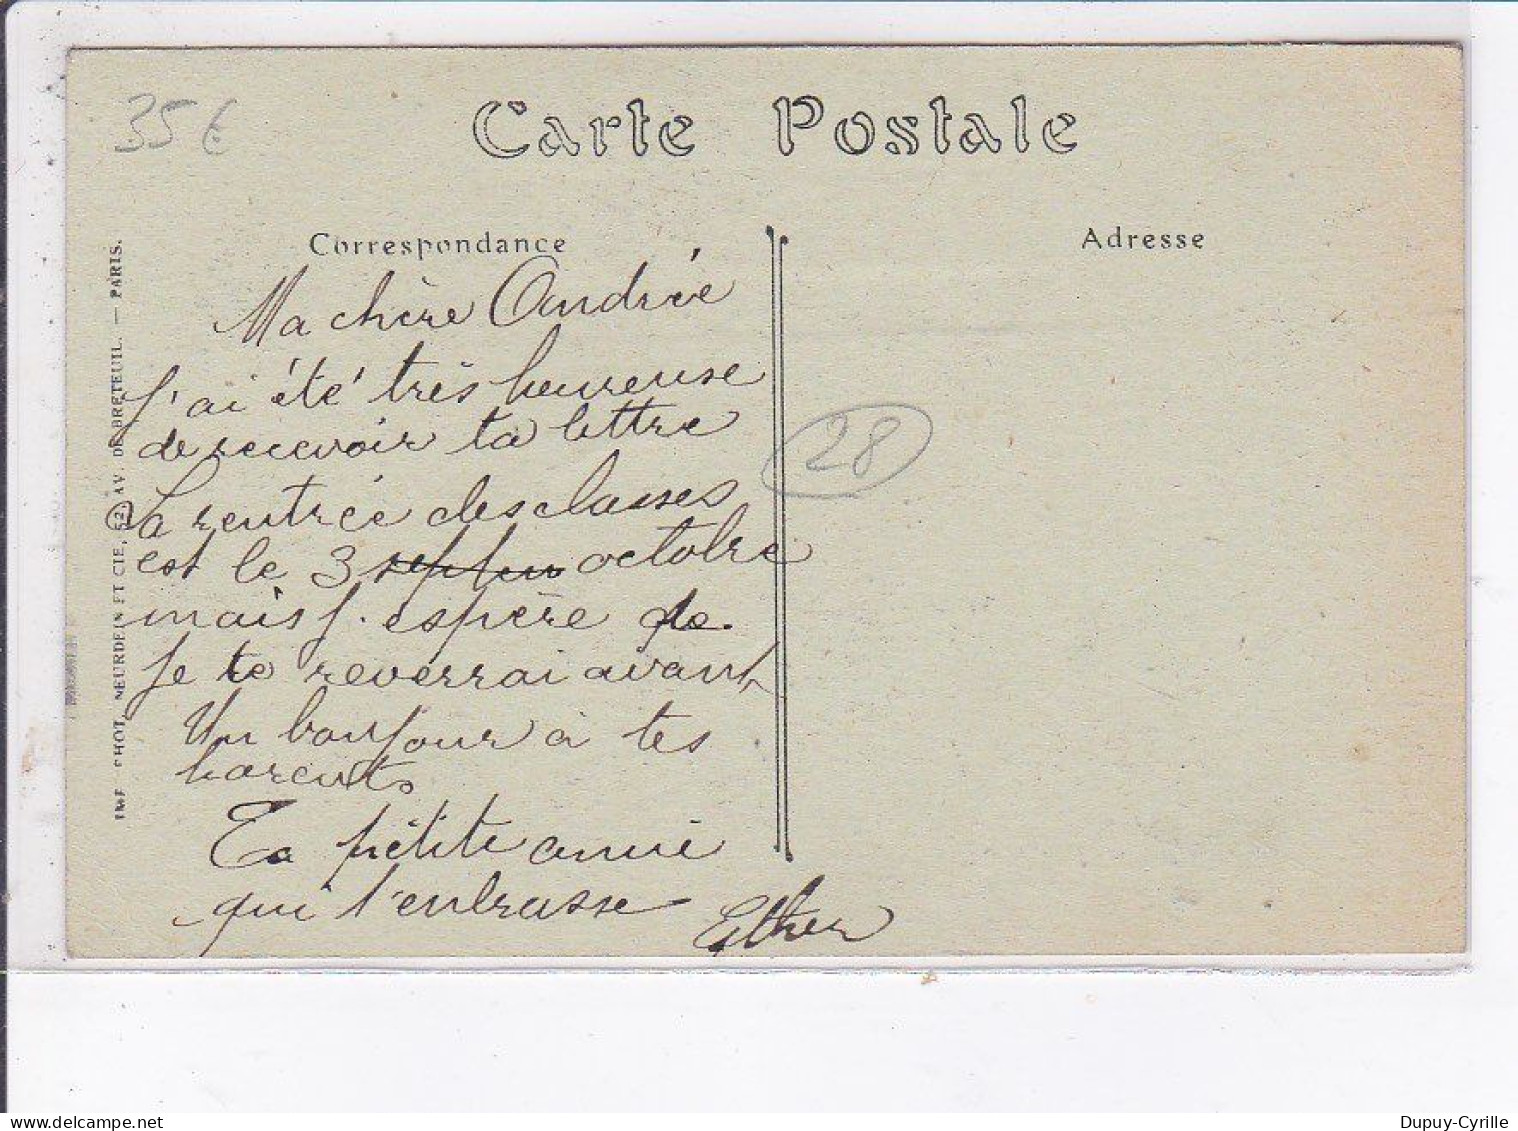 35€
Carte Postale
Correspondance
Adresse
Ma chère Andrée
J'ai été très heureuse
de recevoir ta lettre
La rentrée des classes
est le 3 octobre
mais j'espère
Je te reverrai avant
Un bonjour à tes
parents
Ta petite amie
qui t'embrasse
Esther
28
IMP. PHOT. NEURDEIN ET CIE, 52, AV. DE BRETEUIL. — PARIS.
Dupuy-Cyrille